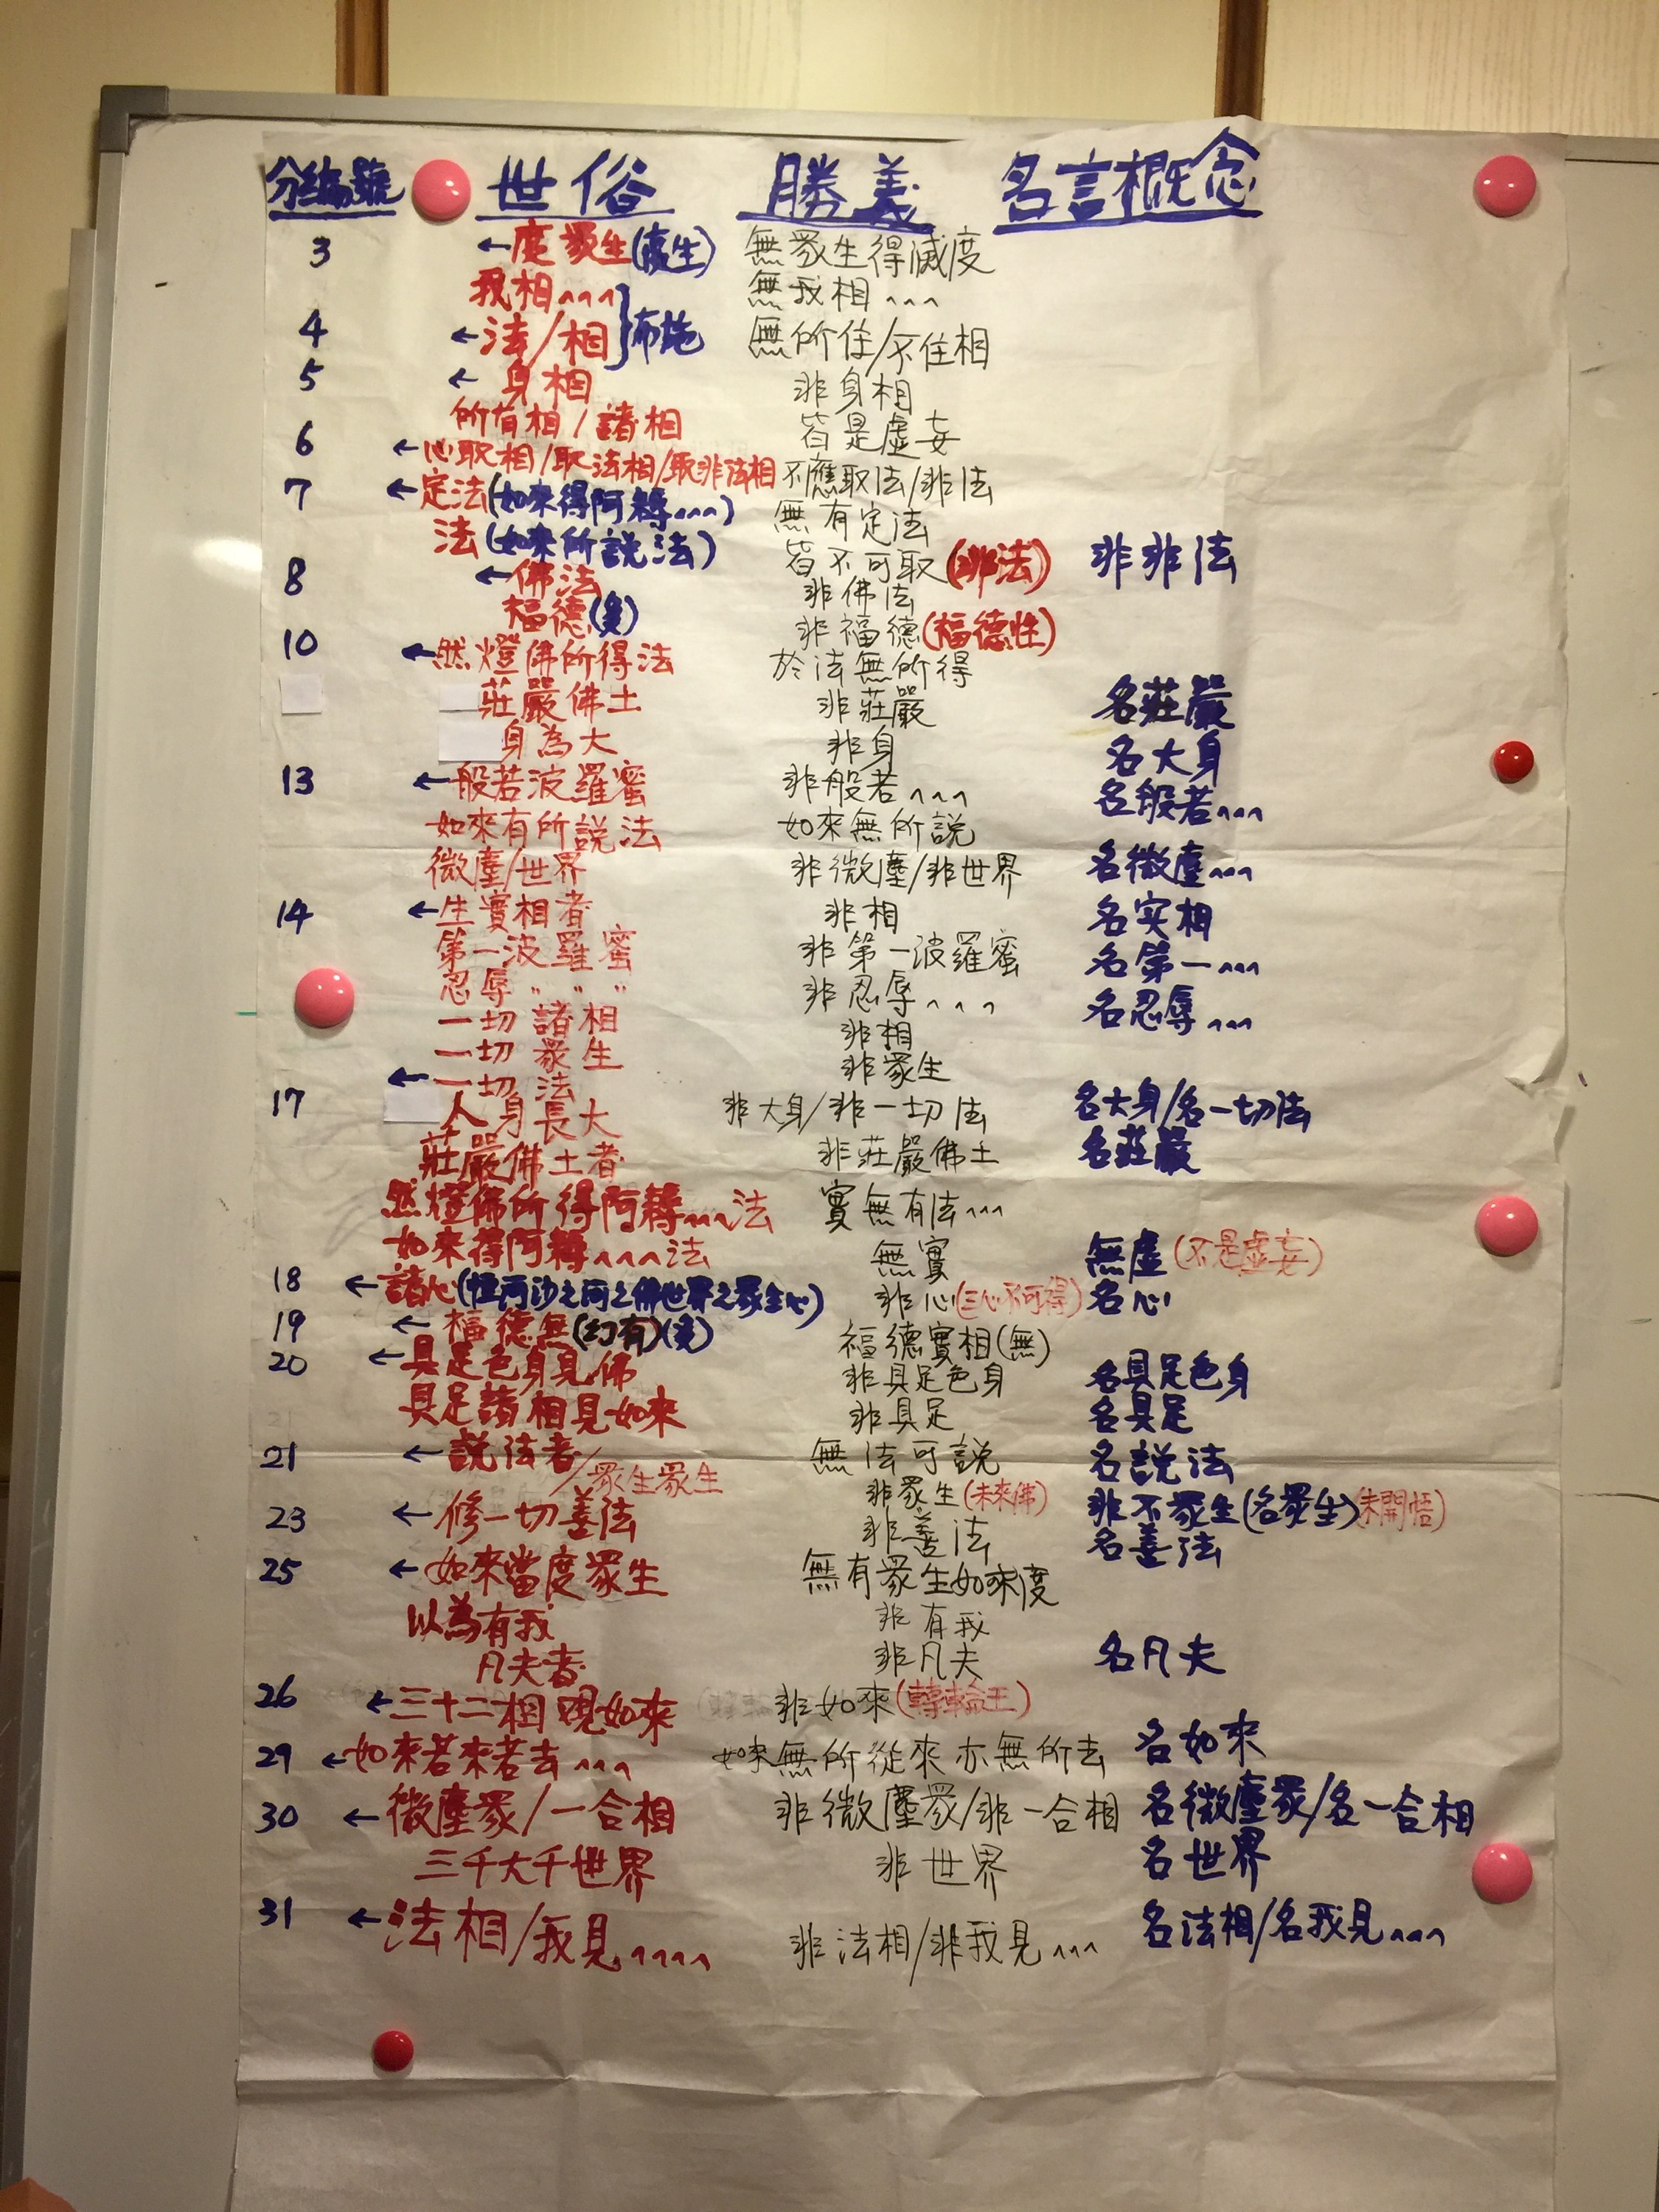 分編號 世俗 勝義 名言概念
3 ←度眾生(度生) 無眾生得滅度
我相^^^ 無我相^^^
4 ←法/相 }布施 無所住/不住相
5 ←身相 非身相
所有相/諸相 皆是虛妄
6 ←心取相/取法相/取非法相 不應取法/非法
7 ←定法(如來得阿耨^^^) 無有定法
法(如來所說法) 皆不可取(非法) 非非法
8 ←佛法 非佛法
福德(多) 非福德(福德性)
10 ←然燈佛所得法 於法無所得
莊嚴佛土 非莊嚴 名莊嚴
身為大 非身 名大身
13 ←般若波羅蜜 非般若^^^ 名般若^^^
如來有所說法 如來無所說
微塵/世界 非微塵/非世界 名微塵^^^
14 ←生實相者 非相 名实相
第一波羅蜜 非第一波羅蜜 名第一^^^
忍辱〃〃〃 非忍辱^^^ 名忍辱^^^
一切諸相 非相
一切眾生 非眾生
←一切法
17 人身長大 非大身/非一切法 名大身/名一切法
莊嚴佛土者 非莊嚴佛土 名莊嚴
然燈佛所得阿耨^^^法 實無有法^^^
如來得阿耨^^^法 無實 無虛(不是虛妄)
18 ←諸心(恒河沙之河之佛世界之眾生心) 非心(三心不可得) 名心
19 ←福德無(幻有)(多) 福德實相(無)
20 ←具足色身見佛 非具足色身 名具足色身
具足諸相見如來 非具足 名具足
21 ←說法者/眾生眾生 無法可說 名說法
非眾生(未來佛) 非不眾生(名眾生)(未開悟)
23 ←修一切善法 非善法 名善法
25 ←如來當度眾生 無有眾生如來度
以為有我 非有我
凡夫者 非凡夫 名凡夫
26 ←三十二相觀如來 非如來(轉輪王)
29 ←如來若來若去^^^ 如來無所從來亦無所去 名如來
30 ←微塵眾/一合相 非微塵眾/非一合相 名微塵眾/名一合相
三千大千世界 非世界 名世界
31 ←法相/我見^^^^ 非法相/非我見^^^ 名法相/名我見^^^